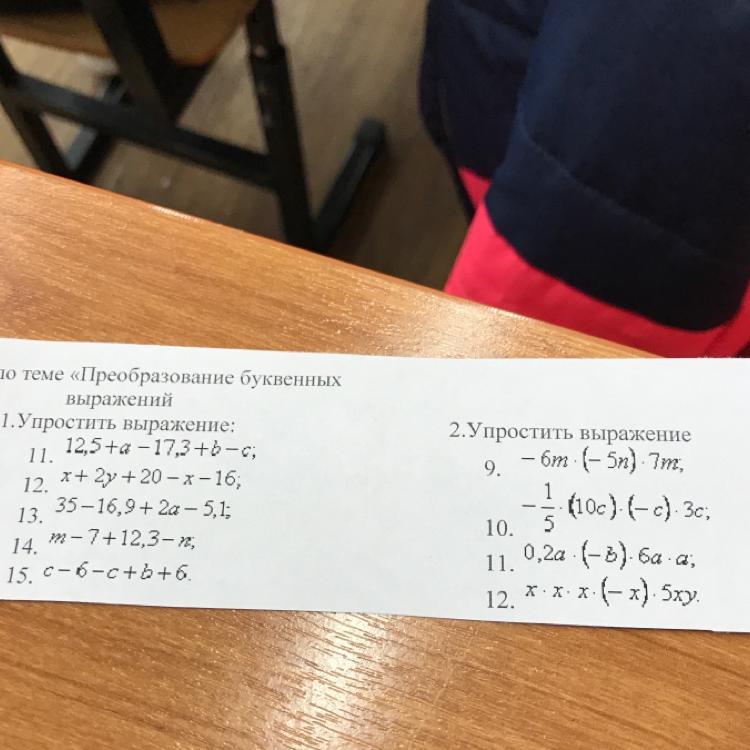 по теме «Преобразование буквенных
выражений
1.Упростить выражение:
11. 12,5+a−17,3+b−c;
12. x+2y+20−x−16;
13. 35−16,9+2a−5,1;
14. m−7+12,3−n;
15. c−6−c+b+6.
2.Упростить выражение
9. −6m·(−5n)·7m;
10. −1/5·(10c)·(−c)·3c;
11. 0,2a·(−b)·6a·a;
12. x·x·x·(−x)·5xy.